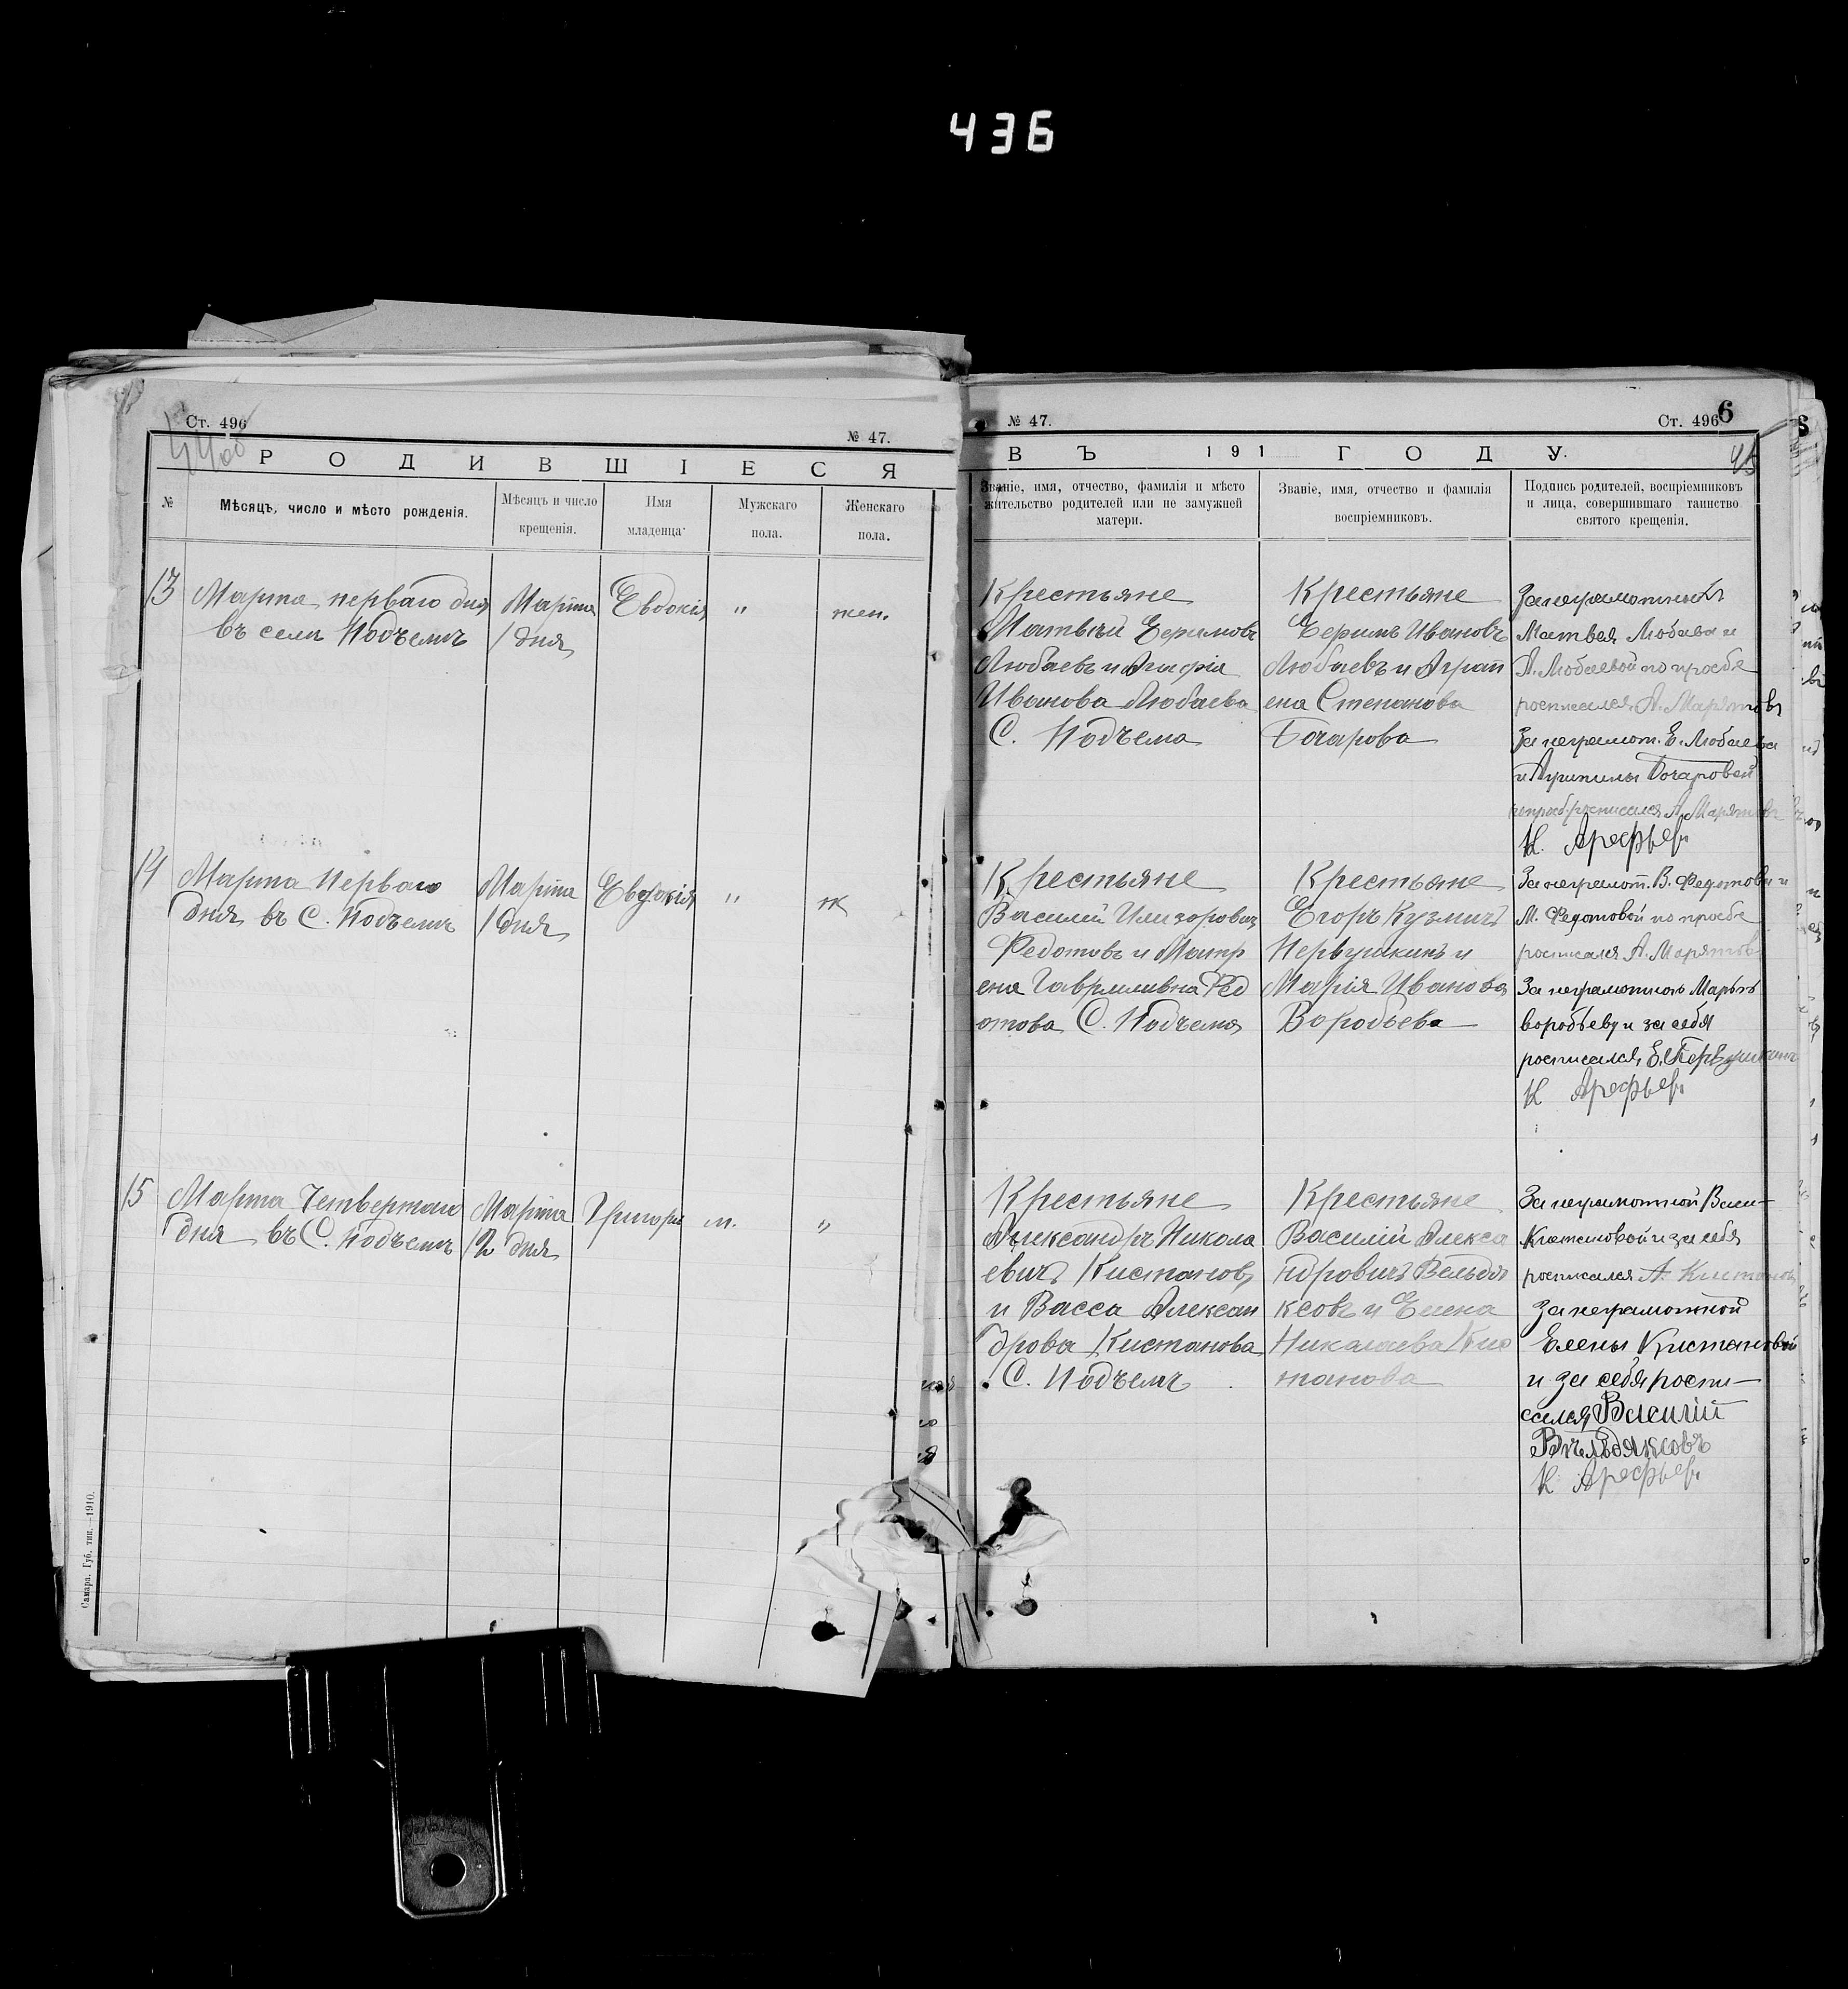 436
Ст. 496
№ 47.
РОДИВШІЕСЯ
№
Мѣсяцъ, число и мѣсто рожденія.
Мѣсяцъ и число
крещенія.
Имя
младенца
Мужскаго
пола.
Женскаго
пола.
13
Марта перваго дня
въ селѣ Подъемѣ
Марта
1 дня
Евдокія
"
жен.
14
Марта Перваго
Дня въ С. Подъемѣ
Марта
1 дня
Евдокія
"
ж
15
Марта Четвертаго
Дня въ С. Подъемѣ
Марта
12 дня
Григорі
м.
"
Самара. Губ. тип.—1910.
№ 47.
Ст. 496
6
ВЪ 191 ГОДУ.
45
Званіе, имя, отчество, фамилія и мѣсто
жительство родителей или не замужней
матери.
Званіе, имя, отчество и фамилія
воспріемниковъ.
Подпись родителей, воспріемниковъ
и лица, совершившаго таинство
святого крещенія.
Крестьяне
Матвѣй Ефимовъ
Любаевъ и
Иванова Любаева
С. Подъема
Крестьяне
Ефимъ Ивановъ
Любаевъ и Аграп
ена Степанова
Бочарова
За неграмотныхъ
Матвея Любаева и
А. Любаевой по просбе
росписался А. Марятовъ
За неграмот. Е. Любаева
и Агрипины Бочаровой
по просб. росписался А. Марятовъ
К. Арефьев
Крестьяне
Василій
Федотовъ и Матр
ена Гаврмливна Фед
отова С. Подъема
Крестьяне
Егоръ Кузмичъ
Первушкинъ и
Марія Иванова
Воробьева
За неграмот. В. Федотова и
М. Федотовой по просбе
росписался А. Марятовъ
За неграмотною Марью
воробьеву и за себя
росписался Е. Первушкинъ
К Арефьев
Крестьяне
Александръ Никола
евичъ Кистановъ
и Васса Алексан
дрова Кистанова
С. Подъемъ
Крестьяне
Василій Алекса
ндровичъ Вельдя
ксовъ и Елена
Николаева Кис
танова
За неграмотной Васи—
Кистановой и за себя
росписался А. Кистановъ
За неграмотной
Елены Кистановой
и за себя роспи—
сался Василій
Вѣльдяксовъ
К. Арефьев